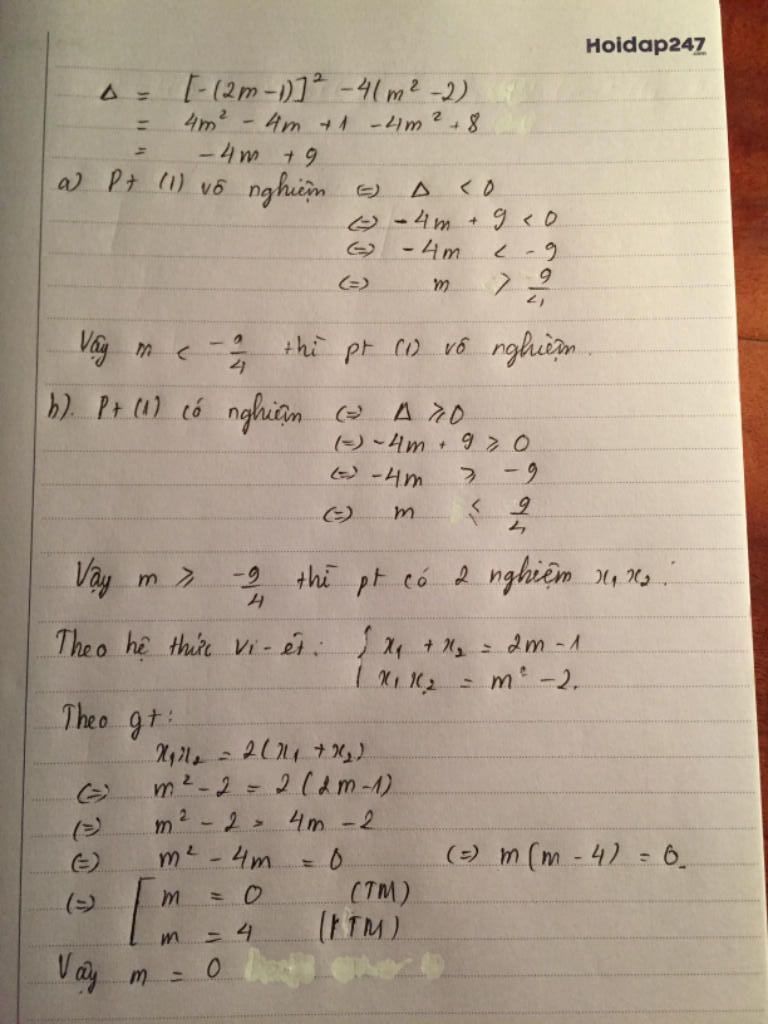 Hoidap247
.com
Δ = [-(2m-1)]² - 4(m² - 2)
= 4m² - 4m + 1 - 4m² + 8
= -4m + 9
a) Pt (1) vô nghiệm (=) Δ < 0
(=) -4m + 9 < 0
(=) -4m < -9
(=) m > 9/4
Vậy m < -9/4 thì pt (1) vô nghiệm.
b). Pt (1) có nghiệm (=) Δ ≥ 0
(=) -4m + 9 ≥ 0
(=) -4m ≥ -9
(=) m ≤ 9/4
Vậy m ≥ -9/4 thì pt có 2 nghiệm x₁ x₂:
Theo hệ thức vi-ét: { x₁ + x₂ = 2m - 1
x₁ x₂ = m² - 2.
Theo gt:
x₁x₂ = 2(x₁ + x₂)
(=) m² - 2 = 2(2m-1)
(=) m² - 2 = 4m - 2
(=) m² - 4m = 0 (=) m(m - 4) = 0
(=) [ m = 0 (TM)
m = 4 (KTM)
Vậy m = 0